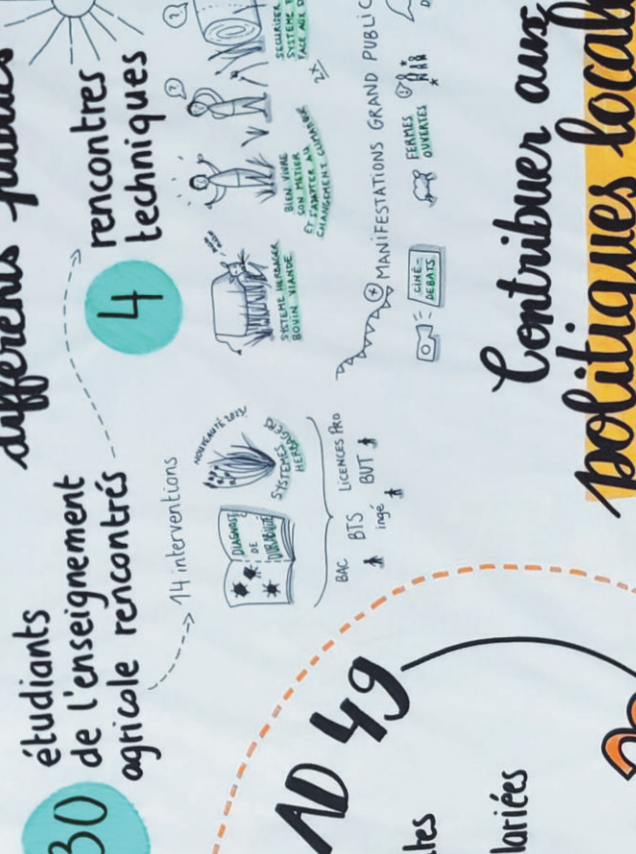 différents publics
30
étudiants
de l'enseignement
agricole rencontrés
4
rencontres
techniques
14 interventions
DIAGNOSTIC
DE
DURABILITÉ
NOUVEAUTÉ 2023!
SYSTÈMES
HERB
BAC
BTS
LICENCES PRO
ingé
BUT
SYSTÈME HERBAGER
BOVIN VIANDE
BIEN VIVRE
SON MÉTIER
ET S'ADAPTER AU
CHANGEMENT CLIMATIQUE
SÉCURISER
SYSTÈME
FACE AUX
+ MANIFESTATIONS GRAND PUBLIC
CINÉ-
DÉBATS
FERMES
OUVERTES
Contribuer aux
politiques local
AD 49
tes
lariées